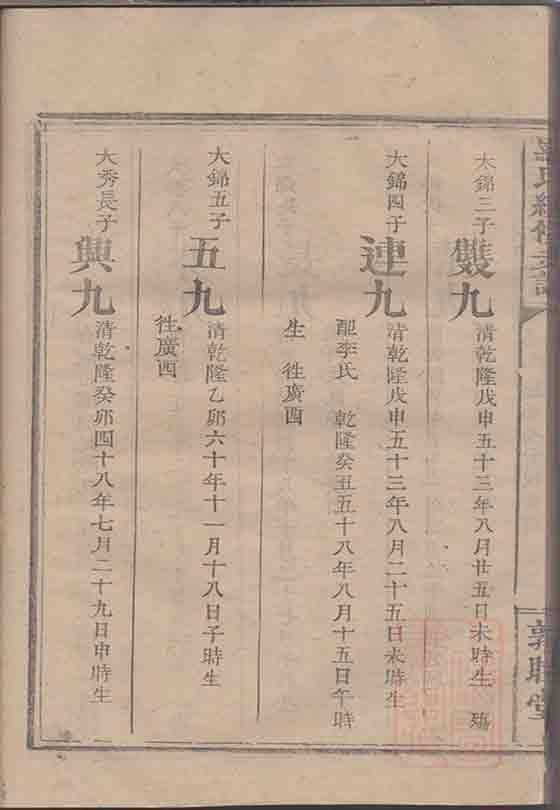 氏續修支譜
大錦三子
雙九
清乾隆戊申五十三年八月廿五日未時生 殤
大錦四子
連九
清乾隆戊申五十三年八月二十五日未時生
配李氏 乾隆癸丑五十八年八月十五日午時
生 徃廣西
大錦五子
五九
清乾隆乙卯六十年十一月十八日子時生
徃廣西
大秀長子
興九
清乾隆癸卯四十八年七月二十九日申時生